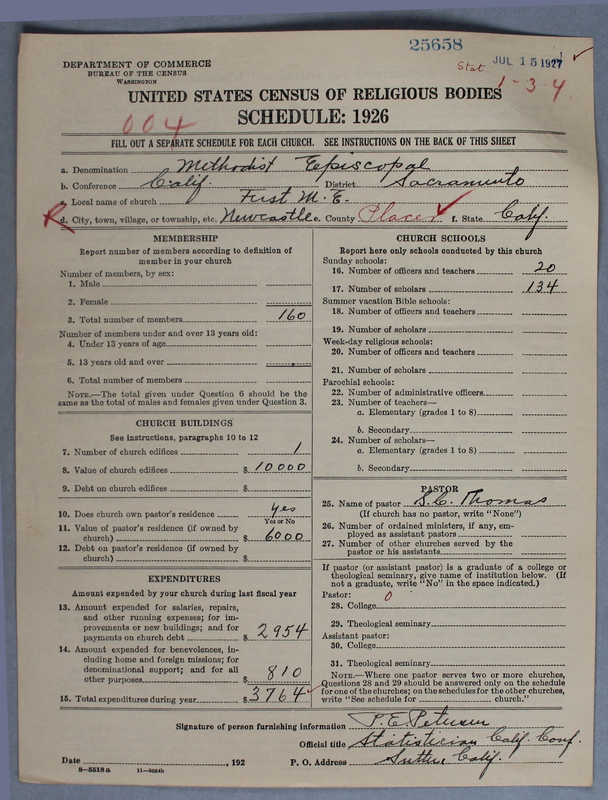 25658
JUL 15 1927
Stat.
1-3-4
DEPARTMENT OF COMMERCE
BUREAU OF THE CENSUS
WASHINGTON
UNITED STATES CENSUS OF RELIGIOUS BODIES
004
SCHEDULE: 1926
FILL OUT A SEPARATE SCHEDULE FOR EACH CHURCH. SEE INSTRUCTIONS ON THE BACK OF THIS SHEET
a. Denomination Methodist Episcopal
b. Conference Calif. District Sacramento
c. Local name of church First M. E.
d. City, town, village, or township, etc. Newcastle e. County Placer f. State Calif.
MEMBERSHIP
Report number of members according to definition of
member in your church
Number of members, by sex:
1. Male
2. Female
3. Total number of members 160
Number of members under and over 13 years old:
4. Under 13 years of age
5. 13 years old and over
6. Total number of members
NOTE.—The total given under Question 6 should be the
same as the total of males and females given under Question 3.
CHURCH BUILDINGS
See instructions, paragraphs 10 to 12
7. Number of church edifices 1
8. Value of church edifices $ 10000
9. Debt on church edifices $
10. Does church own pastor's residence yes
Yes or No
11. Value of pastor's residence (if owned by
church) $ 6000
12. Debt on pastor's residence (if owned by
church) $
EXPENDITURES
Amount expended by your church during last fiscal year
13. Amount expended for salaries, repairs,
and other running expenses; for im-
provements or new buildings; and for
payments on church debt $ 2954
14. Amount expended for benevolences, in-
cluding home and foreign missions; for
denominational support; and for all
other purposes $ 810
15. Total expenditures during year $ 3764
CHURCH SCHOOLS
Report here only schools conducted by this church
Sunday schools:
16. Number of officers and teachers 20
17. Number of scholars 134
Summer vacation Bible schools:
18. Number of officers and teachers
19. Number of scholars
Week-day religious schools:
20. Number of officers and teachers
21. Number of scholars
Parochial schools:
22. Number of administrative officers
23. Number of teachers—
a. Elementary (grades 1 to 8)
b. Secondary
24. Number of scholars—
a. Elementary (grades 1 to 8)
b. Secondary
PASTOR
25. Name of pastor S. C. Thomas
(If church has no pastor, write "None")
26. Number of ordained ministers, if any, em-
ployed as assistant pastors
27. Number of other churches served by the
pastor or his assistants
If pastor (or assistant pastor) is a graduate of a college or
theological seminary, give name of institution below. (If
not a graduate, write "No" in the space indicated.)
Pastor: 0
28. College
29. Theological seminary
Assistant pastor:
30. College
31. Theological seminary
NOTE.—Where one pastor serves two or more churches,
Questions 28 and 29 should be answered only on the schedule
for one of the churches; on the schedules for the other churches,
write "See schedule for church."
Signature of person furnishing information P. E. Peterson
Official title Statistician Calif. Conf.
Date , 192 P. O. Address Sutter, Calif.
8—5518a 11—9054b